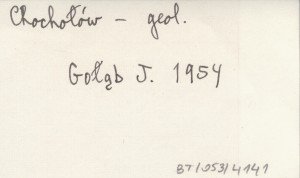 Chochołów - geol.
Gołąb J. 1954
BT/053/4141